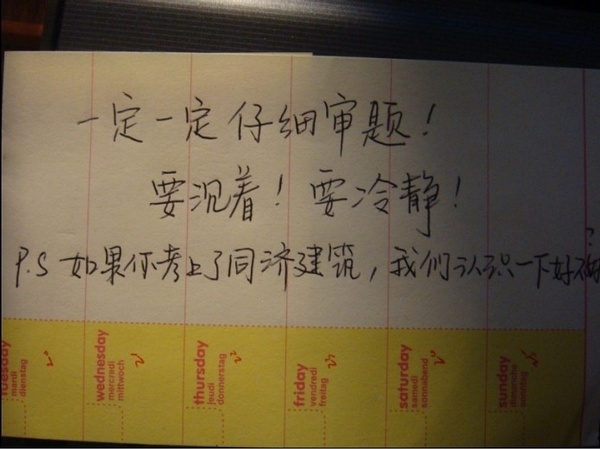 一定一定仔细审题！
要沉着！要冷静！
P.S 如果你考上了同济建筑，我们认识一下好不好？
tuesday
mardi
dienstag
wednesday
mercredi
mittwoch
thursday
jeudi
donnerstag
friday
vendredi
freitag
saturday
samedi
sonnabend
sunday
dimanche
sonntag